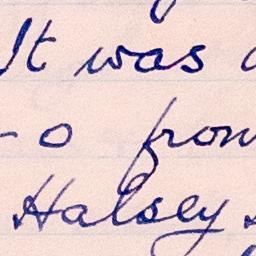 It was
-o from
Halsey